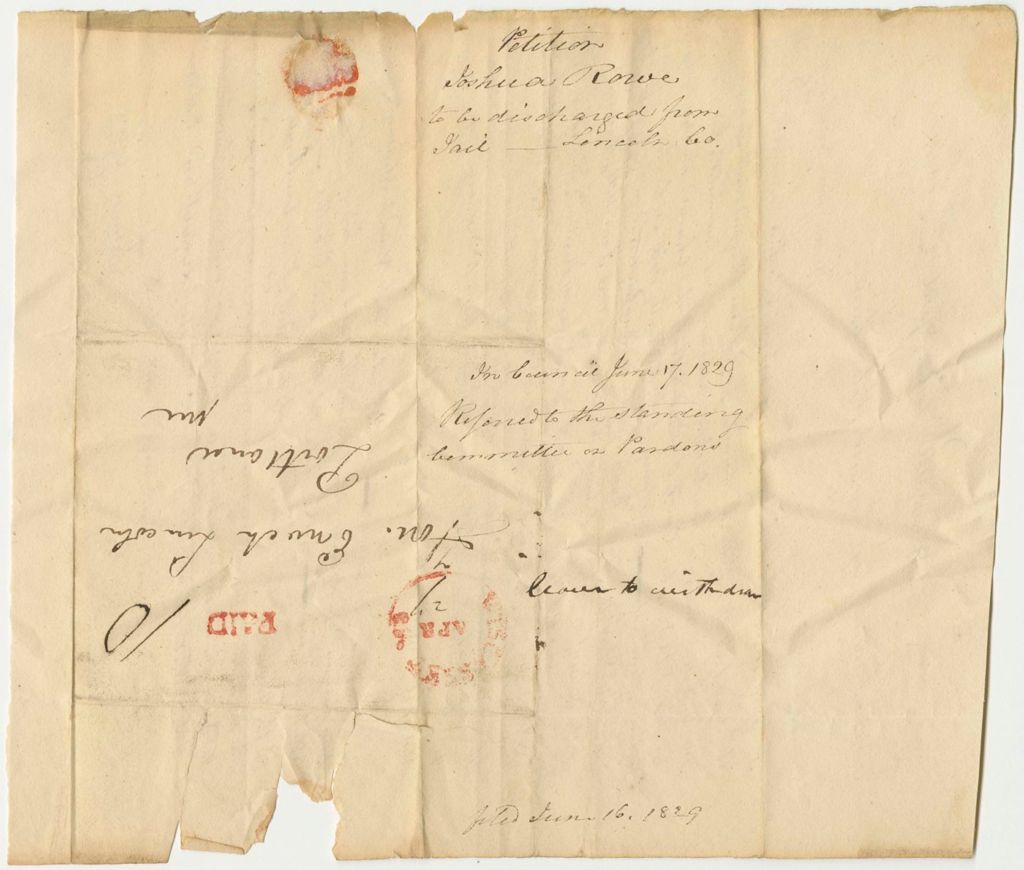 Petition
Joshua Rowe
to be discharged from
Jail — Lincoln Co.
In Council June 17. 1829
Referred to the standing
Committee on Pardons
leave to withdraw
filed June 16. 1829
Hon. Enoch Lincoln
Portland
Me
PAID
10
APR
27